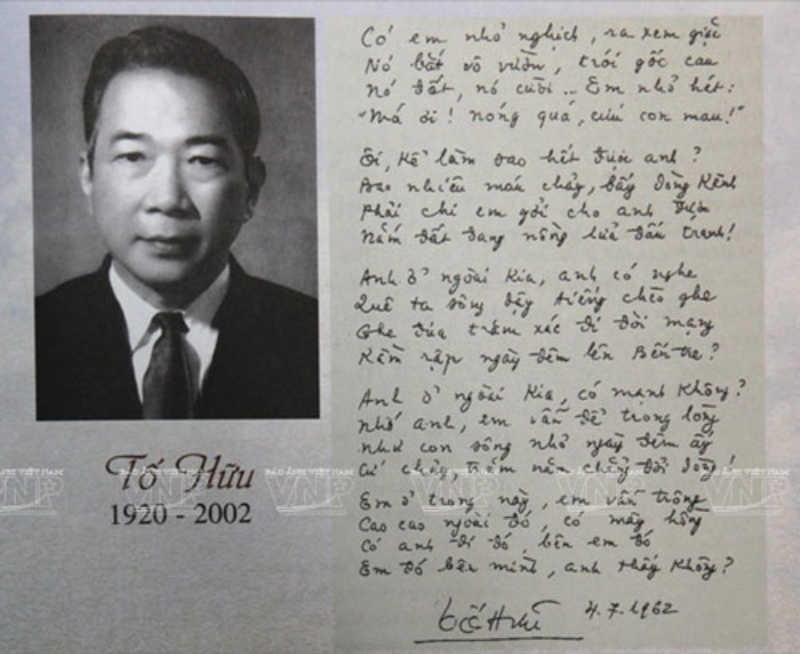 Có em nhỏ nghịch, ra xem giặc
Nó bắt vô vườn, trói gốc cau
Nó đốt, nó cười... Em nhỏ hét:
"Má ơi! nóng quá, cứu con mau!"
Ôi, kể làm sao hết được anh?
Bao nhiêu máu chảy, bấy dòng kênh
Phải chi em gởi cho anh được
Nắm đất đang nồng lửa đấu tranh!
Anh ở ngoài kia, anh có nghe
Quê ta sông dậy tiếng chèo ghe
Ghe đưa trăm xác đi đòi mạng
Rầm rập ngày đêm lên Bến tre?
Anh ở ngoài kia, có mạnh không?
Nhớ anh, em vẫn để trong lòng
Như con sông nhỏ ngày đêm ấy
Cứ chảy, trăm năm chẳng đổi dòng!
Em ở trong này, em vẫn trông
Cao cao ngoài đó, có mây hồng
Có anh đi đó, bên em đó
Em đó bên mình, anh thấy không?
Tố Hữu 4.7.1962
Tố Hữu
1920 - 2002
BÁO ẢNH VIỆT NAM
VNP
BÁO ẢNH VIỆT NAM
VNP
BÁO ẢNH VIỆT NAM
VNP